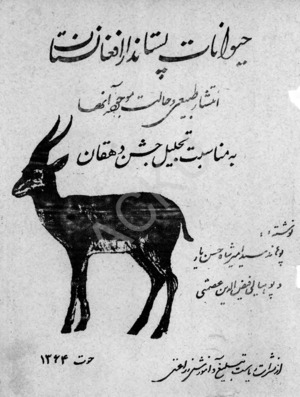 حیوانات پستاندار افغانستان
انتشار طبیعی و حالت موجوده آنها
به مناسبت تجلیل جشن دهقان
نوشته:
پوهاند سید امیر شاه حسن یار
و پوهیالی فیض الدین عصمتی
حوت ۱۳۶۴
از نشرات ریاست تبلیغ و آموزش زراعتی
ACKU